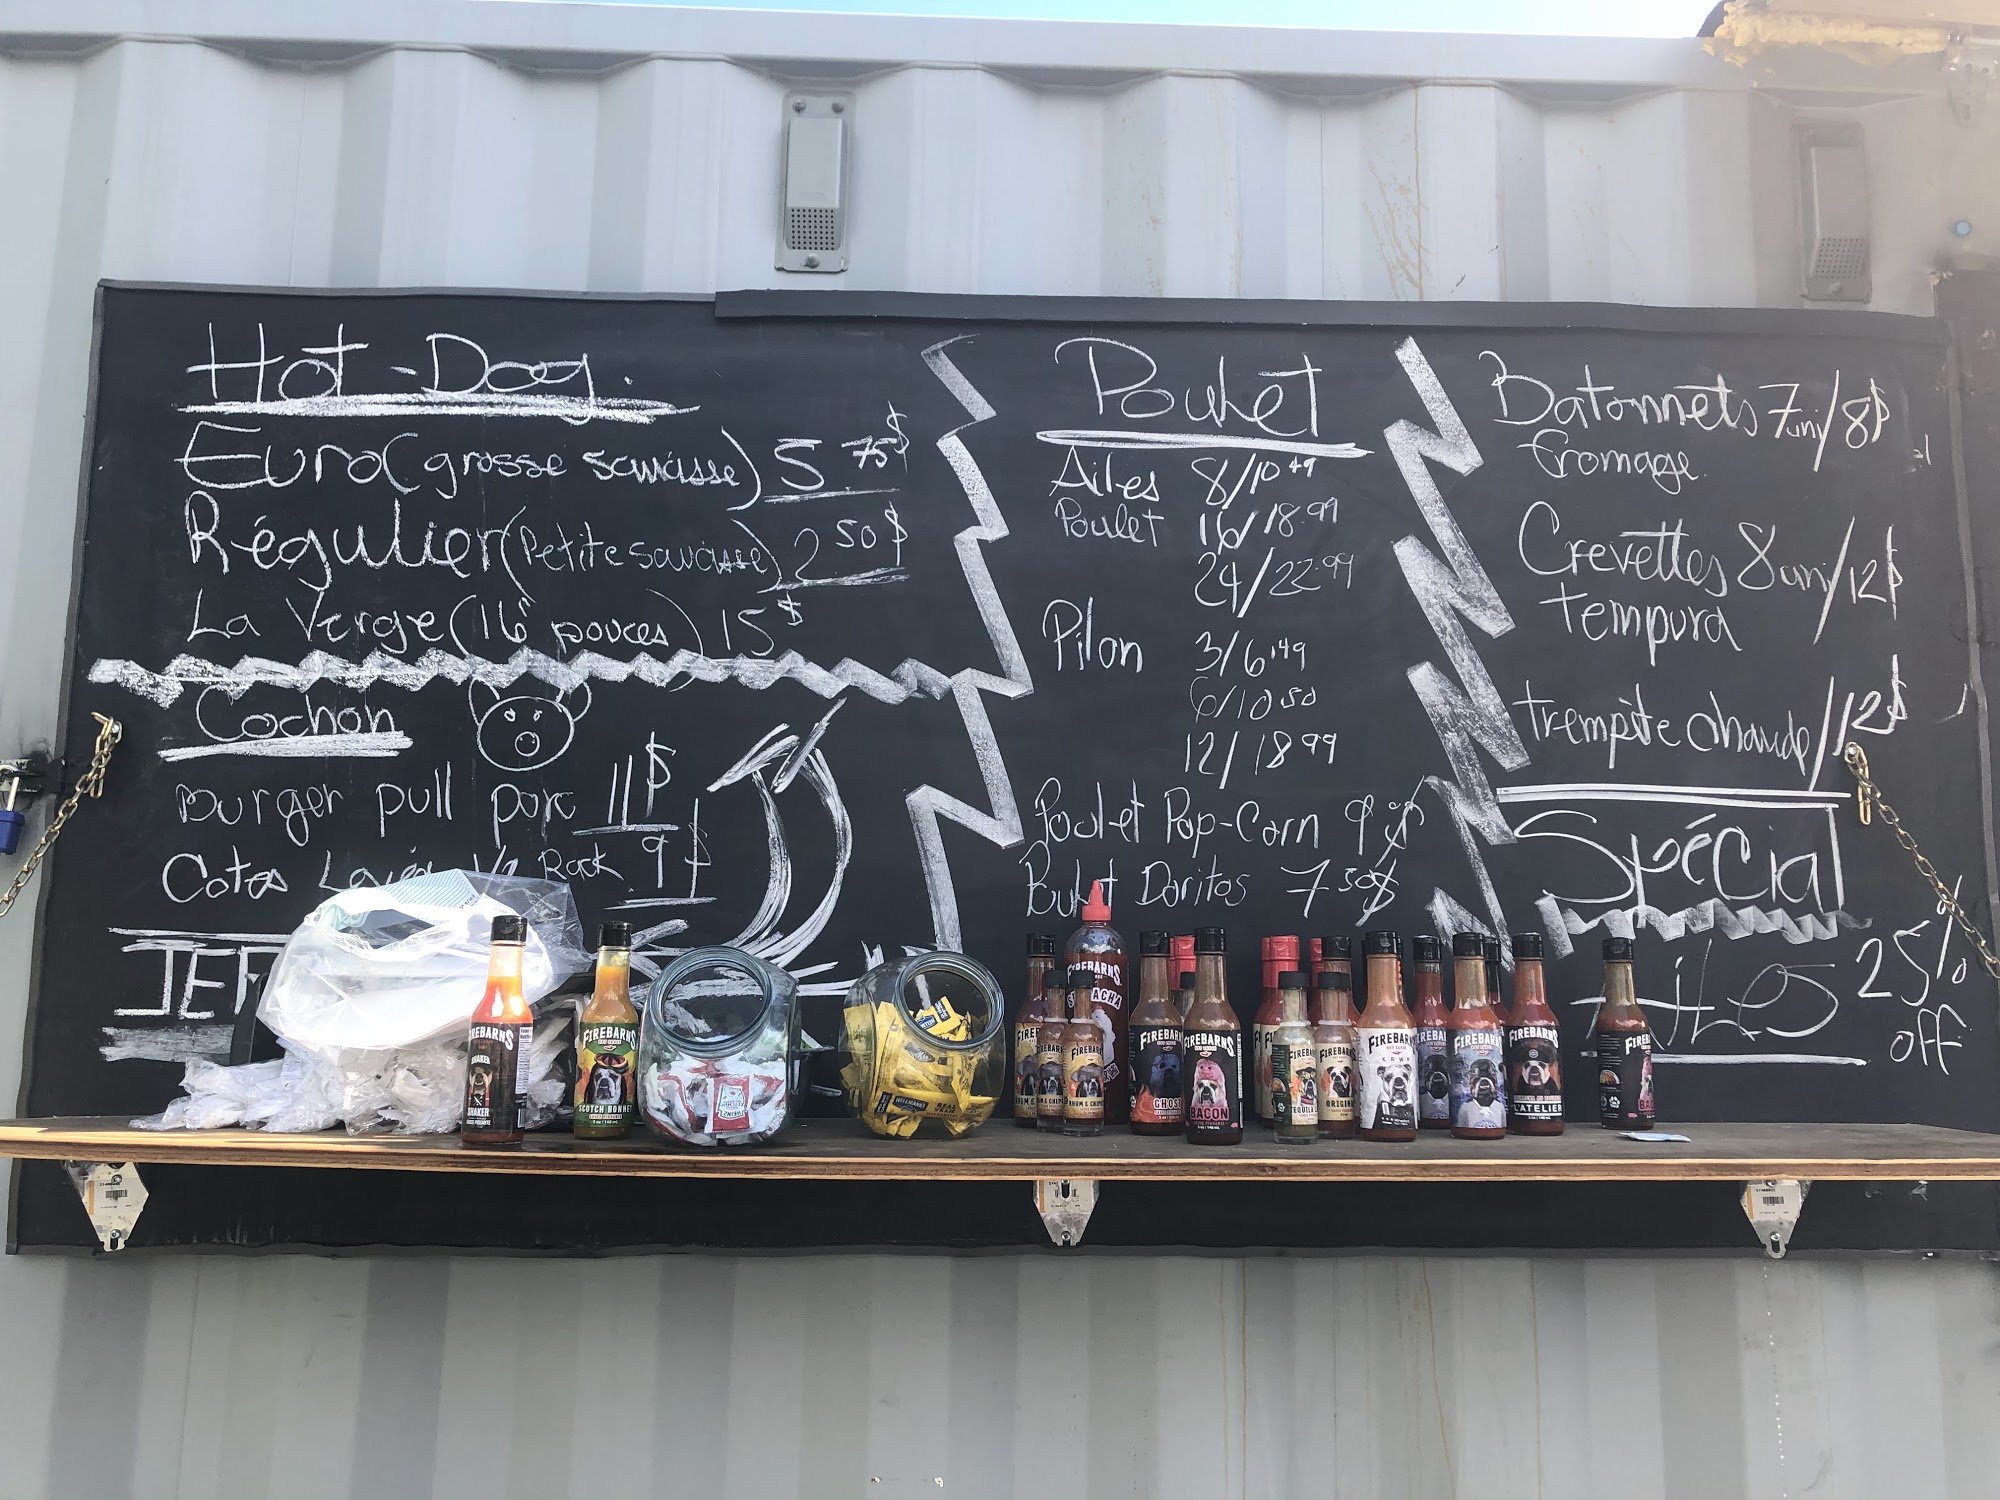 Hot-Dog.
Euro (grosse saucisse) 5.75$
Régulier (Petite saucisse) 2.50$
La Verge (16" pouces) 15$
Cochon
Burger pull porc 11$
Cotes 1/2 Rack 9$
JER
Poulet
Ailes 8/10.49
Poulet 16/18.99
24/22.99
Pilon 3/6.49
6/10.50
12/18.99
Poulet Pop-Corn 9
Poulet Doritos 7.50$
Batonnets 7uni/8$
fromage
Crevettes 8uni/12$
tempura
trempète chaude/12$
Spécial
AILES 25% off
FIREBARNS
SHAKER
FIREBARNS
SCOTCH BONNET
HEINZ
HELLMANN'S
REAL
FIREBARNS
RHUM & CHIPOTLE
FIREBARNS
GHOST
FIREBARNS
BACON
FIREBARNS
TEQUILA
FIREBARNS
ORIGINAL
FIREBARNS
KRWN
FIREBARNS
FIREBARNS
FIREBARNS
L'ATELIER